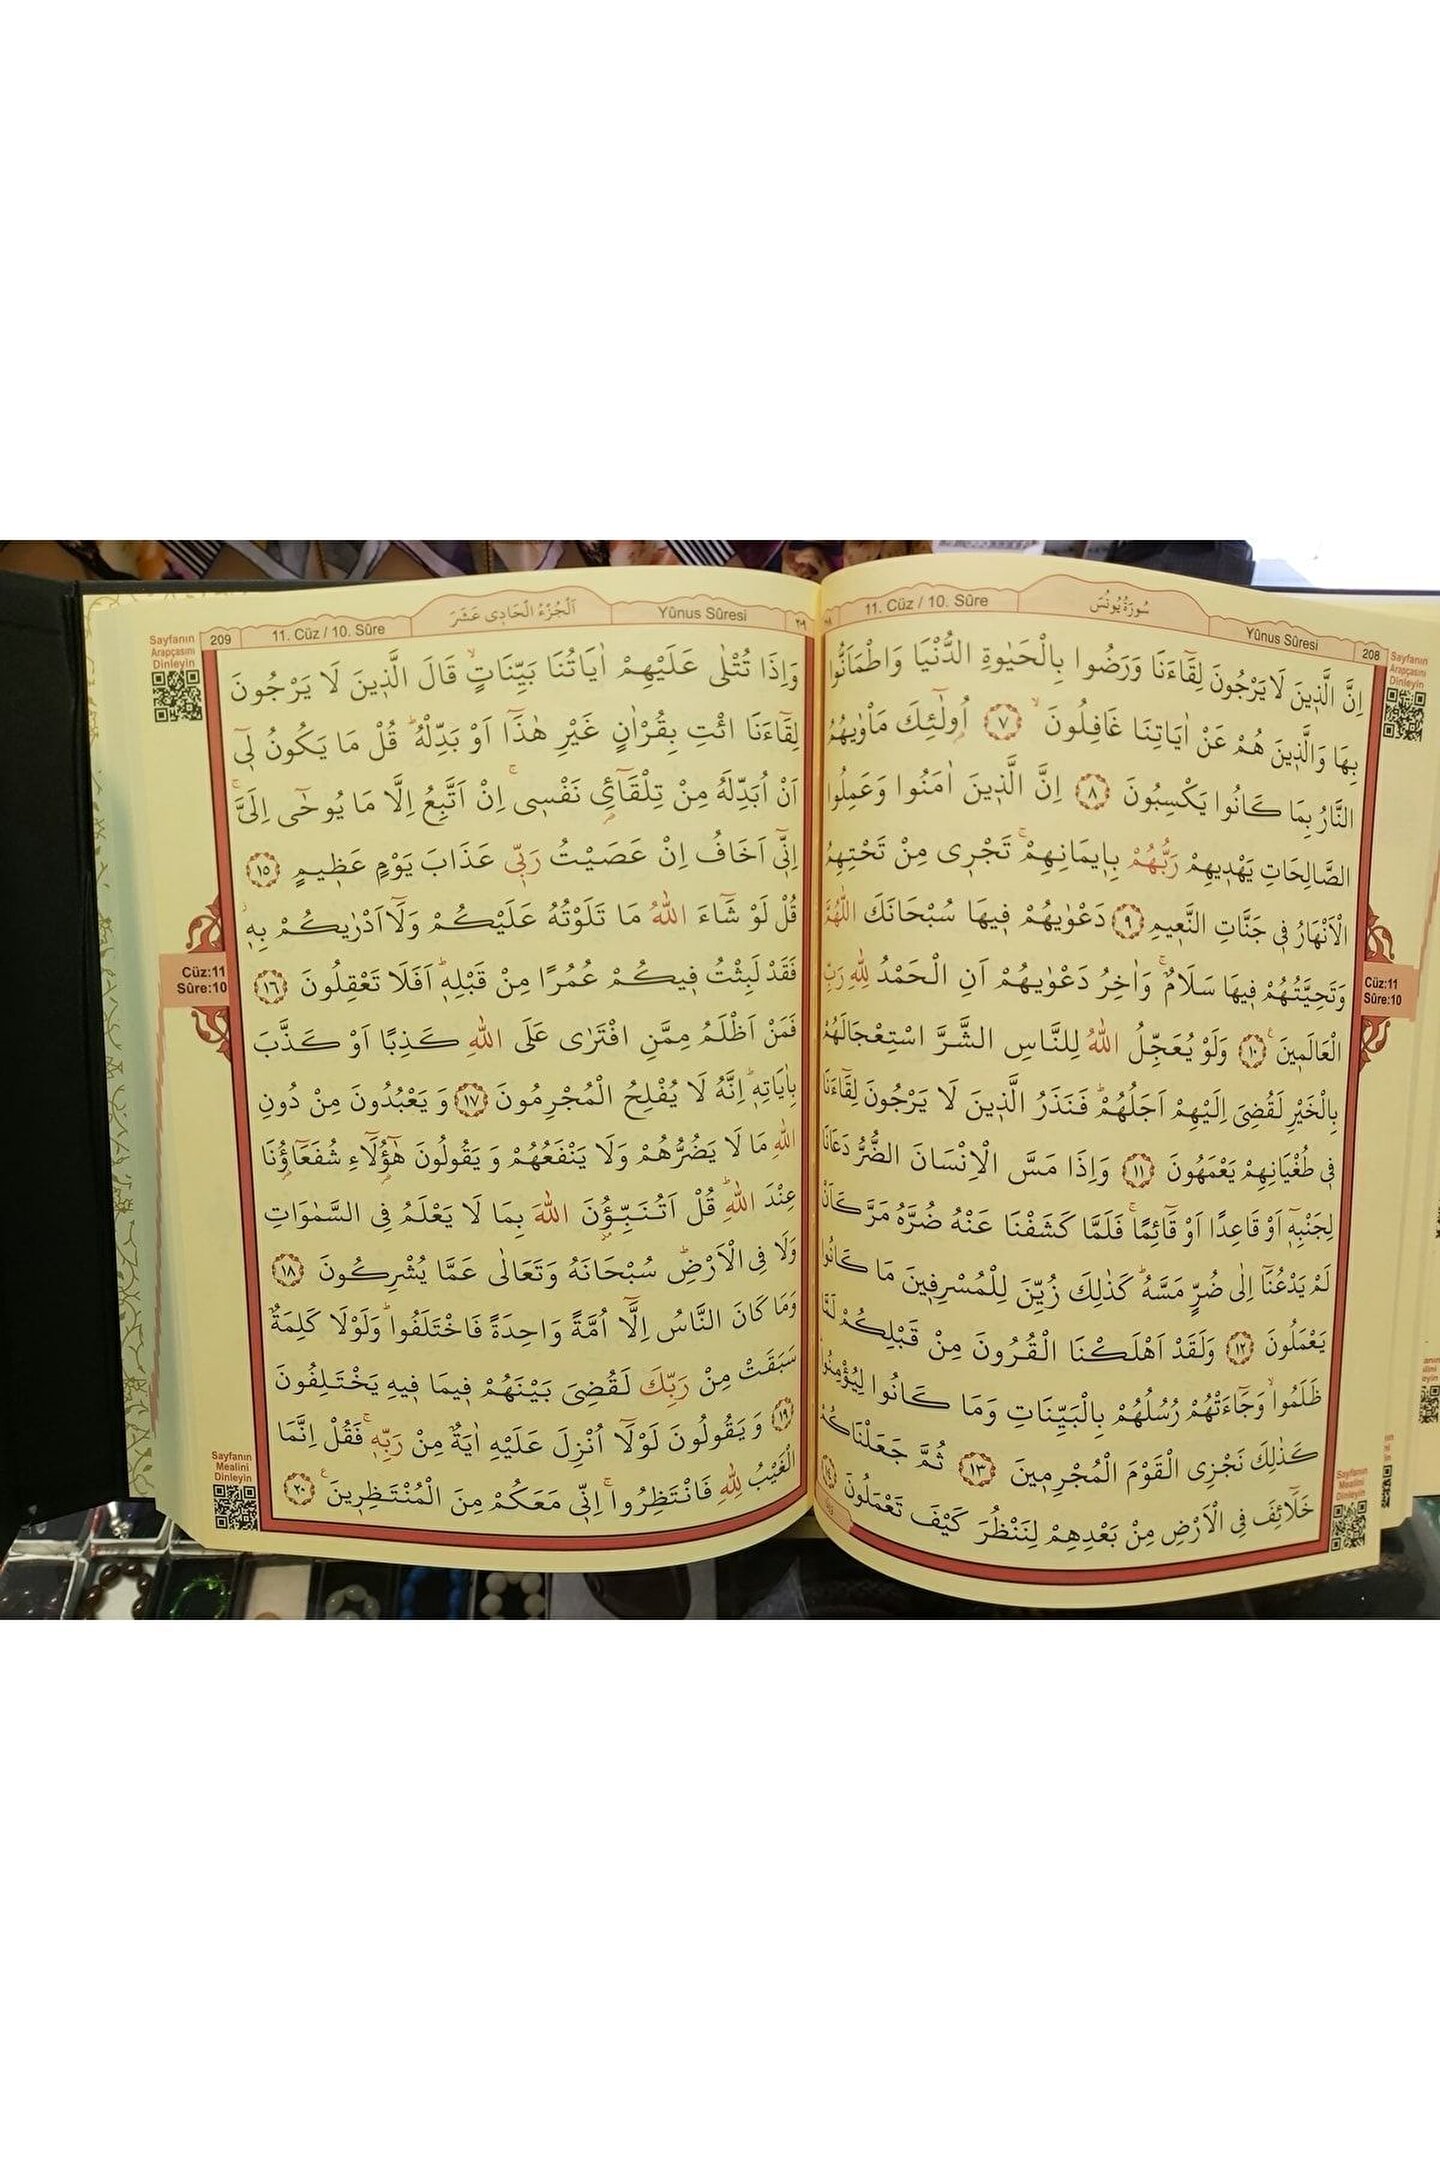 سُورَةُ يُونُسَ
11. Cüz / 10. Sûre
Yûnus Sûresi
208
Sayfanın
Arapçasını
Dinleyin
اِنَّ الَّذ۪ينَ لَا يَرْجُونَ لِقَٓاءَنَا وَرَضُوا بِالْحَيٰوةِ الدُّنْيَا وَاطْمَاَنُّوا
بِهَا وَالَّذ۪ينَ هُمْ عَنْ اٰيَاتِنَا غَافِلُونَۙ ﴿٧﴾ اُو۬لٰٓئِكَ مَأْوٰيهُمُ
النَّارُ بِمَا كَانُوا يَكْسِبُونَ ﴿٨﴾ اِنَّ الَّذ۪ينَ اٰمَنُوا وَعَمِلُوا
الصَّالِحَاتِ يَهْد۪يهِمْ رَبُّهُمْ بِا۪يمَانِهِمْۚ تَجْر۪ي مِنْ تَحْتِهِمُ
الْاَنْهَارُ ف۪ي جَنَّاتِ النَّع۪يمِ ﴿٩﴾ دَعْوٰيهُمْ ف۪يهَا سُبْحَانَكَ اللّٰهُمَّ
وَتَحِيَّتُهُمْ ف۪يهَا سَلَامٌۚ وَاٰخِرُ دَعْوٰيهُمْ اَنِ الْحَمْدُ لِلّٰهِ رَبِّ
الْعَالَم۪ينَ۟ ﴿١٠﴾ وَلَوْ يُعَجِّلُ اللّٰهُ لِلنَّاسِ الشَّرَّ اسْتِعْجَالَهُمْ
بِالْخَيْرِ لَقُضِيَ اِلَيْهِمْ اَجَلُهُمْۜ فَنَذَرُ الَّذ۪ينَ لَا يَرْجُونَ لِقَٓاءَنَا
ف۪ي طُغْيَانِهِمْ يَعْمَهُونَ ﴿١١﴾ وَاِذَا مَسَّ الْاِنْسَانَ الضُّرُّ دَعَانَا
لِجَنْبِه۪ٓ اَوْ قَاعِدًا اَوْ قَٓائِمًاۚ فَلَمَّا كَشَفْنَا عَنْهُ ضُرَّهُ مَرَّ كَاَنْ
لَمْ يَدْعُنَٓا اِلٰى ضُرٍّ مَسَّهُۜ كَذٰلِكَ زُيِّنَ لِلْمُسْرِف۪ينَ مَا كَانُوا
يَعْمَلُونَ ﴿١٢﴾ وَلَقَدْ اَهْلَكْنَا الْقُرُونَ مِنْ قَبْلِكُمْ لَمَّا
ظَلَمُواۙ وَجَٓاءَتْهُمْ رُسُلُهُمْ بِالْبَيِّنَاتِ وَمَا كَانُوا لِيُؤْمِنُوا
كَذٰلِكَ نَجْزِي الْقَوْمَ الْمُجْرِم۪ينَ ﴿١٣﴾ ثُمَّ جَعَلْنَاكُمْ
خَلَٓائِفَ فِي الْاَرْضِ مِنْ بَعْدِهِمْ لِنَنْظُرَ كَيْفَ تَعْمَلُونَ ﴿١٤﴾
Cüz:11
Sûre:10
Sayfanın
Mealini
Dinleyin
209
11. Cüz / 10. Sûre
اَلْجُزْءُ الْحَادِي عَشَرَ
Yûnus Sûresi
٢٠٩
Sayfanın
Arapçasını
Dinleyin
وَاِذَا تُتْلٰى عَلَيْهِمْ اٰيَاتُنَا بَيِّنَاتٍۙ قَالَ الَّذ۪ينَ لَا يَرْجُونَ
لِقَٓاءَنَا ائْتِ بِقُرْاٰنٍ غَيْرِ هٰذَٓا اَوْ بَدِّلْهُۜ قُلْ مَا يَكُونُ ل۪ٓي
اَنْ اُبَدِّلَهُ مِنْ تِلْقَٓائِ۬ نَفْس۪يۚ اِنْ اَتَّبِعُ اِلَّا مَا يُوحٰٓى اِلَيَّۚ
اِنّ۪ٓي اَخَافُ اِنْ عَصَيْتُ رَبّ۪ي عَذَابَ يَوْمٍ عَظ۪يمٍ ﴿١٥﴾
قُلْ لَوْ شَٓاءَ اللّٰهُ مَا تَلَوْتُهُ عَلَيْكُمْ وَلَٓا اَدْرٰيكُمْ بِه۪ۘ
فَقَدْ لَبِثْتُ ف۪يكُمْ عُمُرًا مِنْ قَبْلِه۪ۜ اَفَلَا تَعْقِلُونَ ﴿١٦﴾
فَمَنْ اَظْلَمُ مِمَّنِ افْتَرٰى عَلَى اللّٰهِ كَذِبًا اَوْ كَذَّبَ
بِاٰيَاتِه۪ۜ اِنَّهُ لَا يُفْلِحُ الْمُجْرِمُونَ ﴿١٧﴾ وَيَعْبُدُونَ مِنْ دُونِ
اللّٰهِ مَا لَا يَضُرُّهُمْ وَلَا يَنْفَعُهُمْ وَيَقُولُونَ هٰٓؤُ۬لَٓاءِ شُفَعَٓاؤُ۬نَا
عِنْدَ اللّٰهِۜ قُلْ اَتُنَبِّؤُ۫نَ اللّٰهَ بِمَا لَا يَعْلَمُ فِي السَّمٰوَاتِ
وَلَا فِي الْاَرْضِۜ سُبْحَانَهُ وَتَعَالٰى عَمَّا يُشْرِكُونَ ﴿١٨﴾
وَمَا كَانَ النَّاسُ اِلَّٓا اُمَّةً وَاحِدَةً فَاخْتَلَفُواۜ وَلَوْلَا كَلِمَةٌ
سَبَقَتْ مِنْ رَبِّكَ لَقُضِيَ بَيْنَهُمْ ف۪يمَا ف۪يهِ يَخْتَلِفُونَ
﴿١٩﴾ وَيَقُولُونَ لَوْلَٓا اُنْزِلَ عَلَيْهِ اٰيَةٌ مِنْ رَبِّه۪ۚ فَقُلْ اِنَّمَا
الْغَيْبُ لِلّٰهِ فَانْتَظِرُواۚ اِنّ۪ي مَعَكُمْ مِنَ الْمُنْتَظِر۪ينَ۟ ﴿٢٠﴾
Cüz:11
Sûre:10
Sayfanın
Mealini
Dinleyin